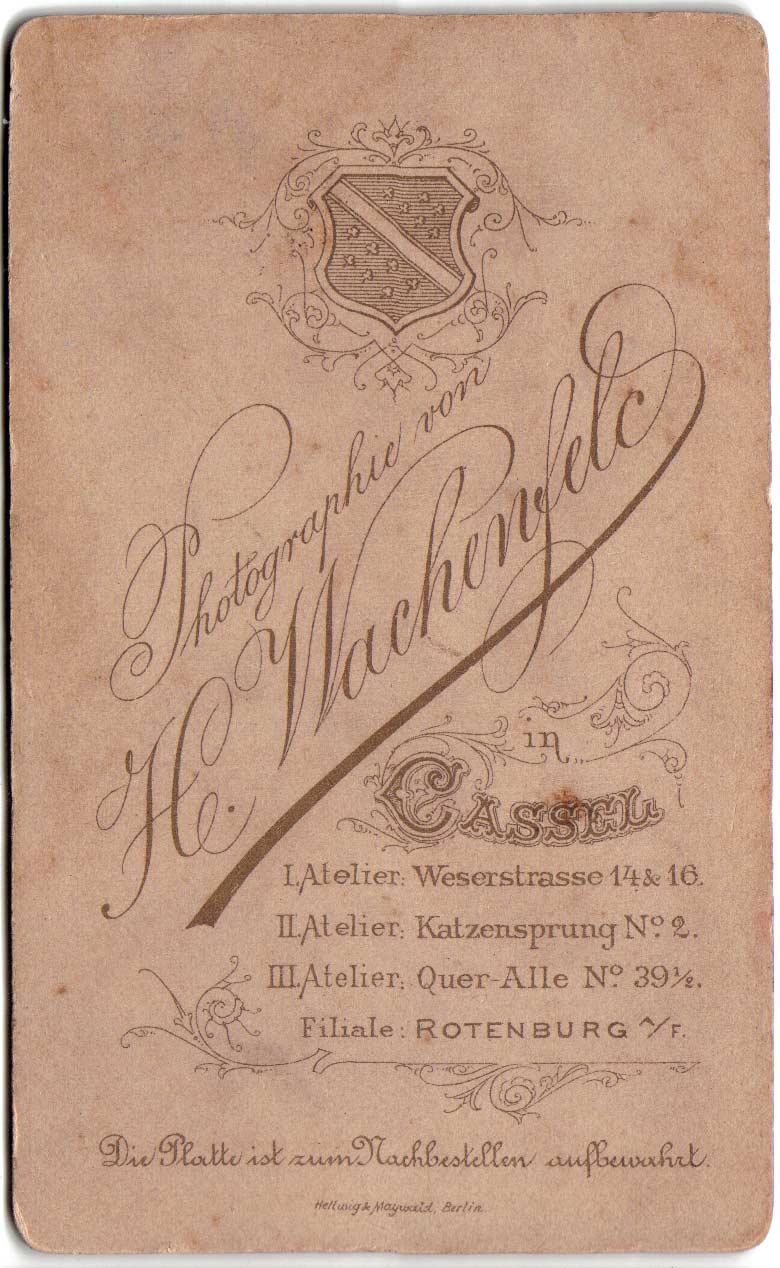 Photographie von
H. Wachenfeld
in
CASSEL
I. Atelier: Weserstrasse 14 & 16.
II. Atelier: Katzensprung No. 2.
III. Atelier: Quer-Alle No. 39½.
Filiale: ROTENBURG A/F.
Die Platte ist zum Nachbestellen aufbewahrt.
Hellwig & Maywald, Berlin